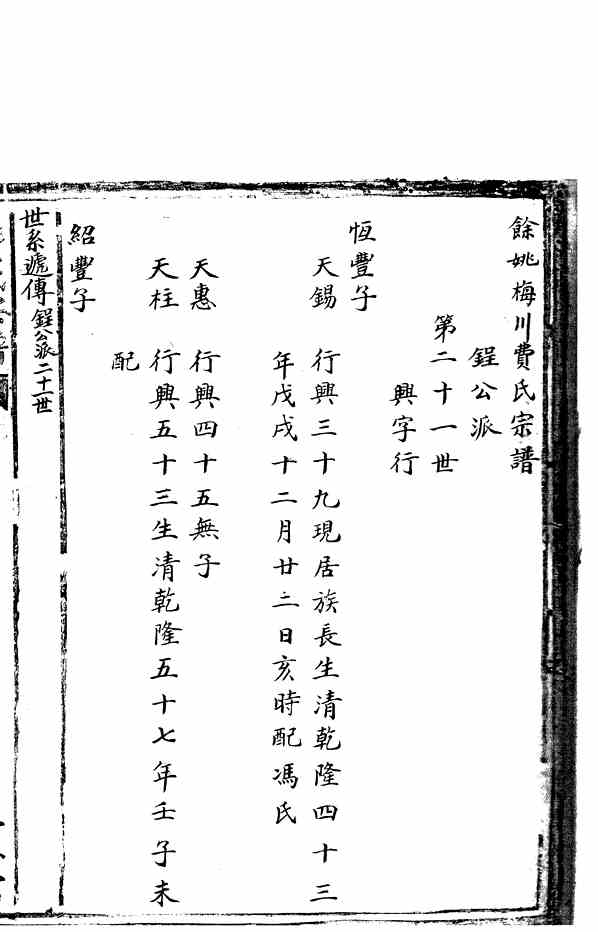 餘姚梅川費氏宗譜
鋥公派
第二十一世
興字行
恆豐子
天錫 行興三十九現居族長生清乾隆四十三
年戊戌十二月廿二日亥時配馮氏
天惠 行興四十五無子
天柱 行興五十三生清乾隆五十七年壬子未
配
紹豐子
世系遞傳 鋥公派二十一世